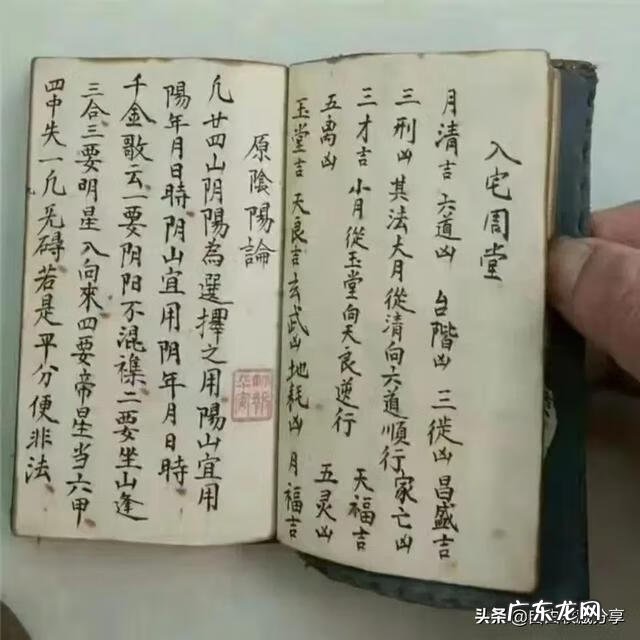 入宅周堂
月清吉 六道凶 台階凶 三徒凶 昌盛吉
三刑凶 其法大月從清向六道順行 家亡凶
三才吉 小月從玉堂向天良逆行 天福吉
五禹凶 五灵凶
玉堂吉 天良吉 玄武凶 地耗凶 月福吉
原陰陽論
凢廿四山阴陽為選擇之用陽山宜用
陽年月日時阴山宜用阴年月日時
千金歌云一要阴阳不混襍二要坐山逢
三合三要明星入向來四要帝星当六甲
四中失一凢无碍若是平分便非法
头条
广东龙网